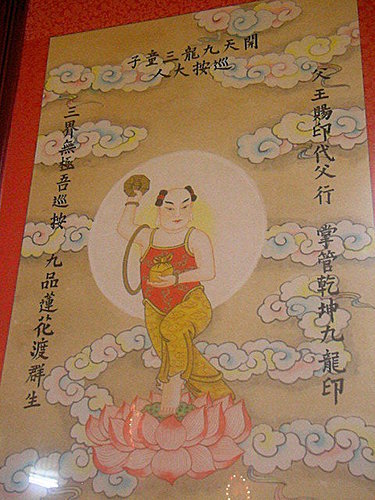 開天九龍三童子
巡按大人
父王賜印代父行 掌管乾坤九龍印
三界無極吾巡按 九品蓮花渡群生